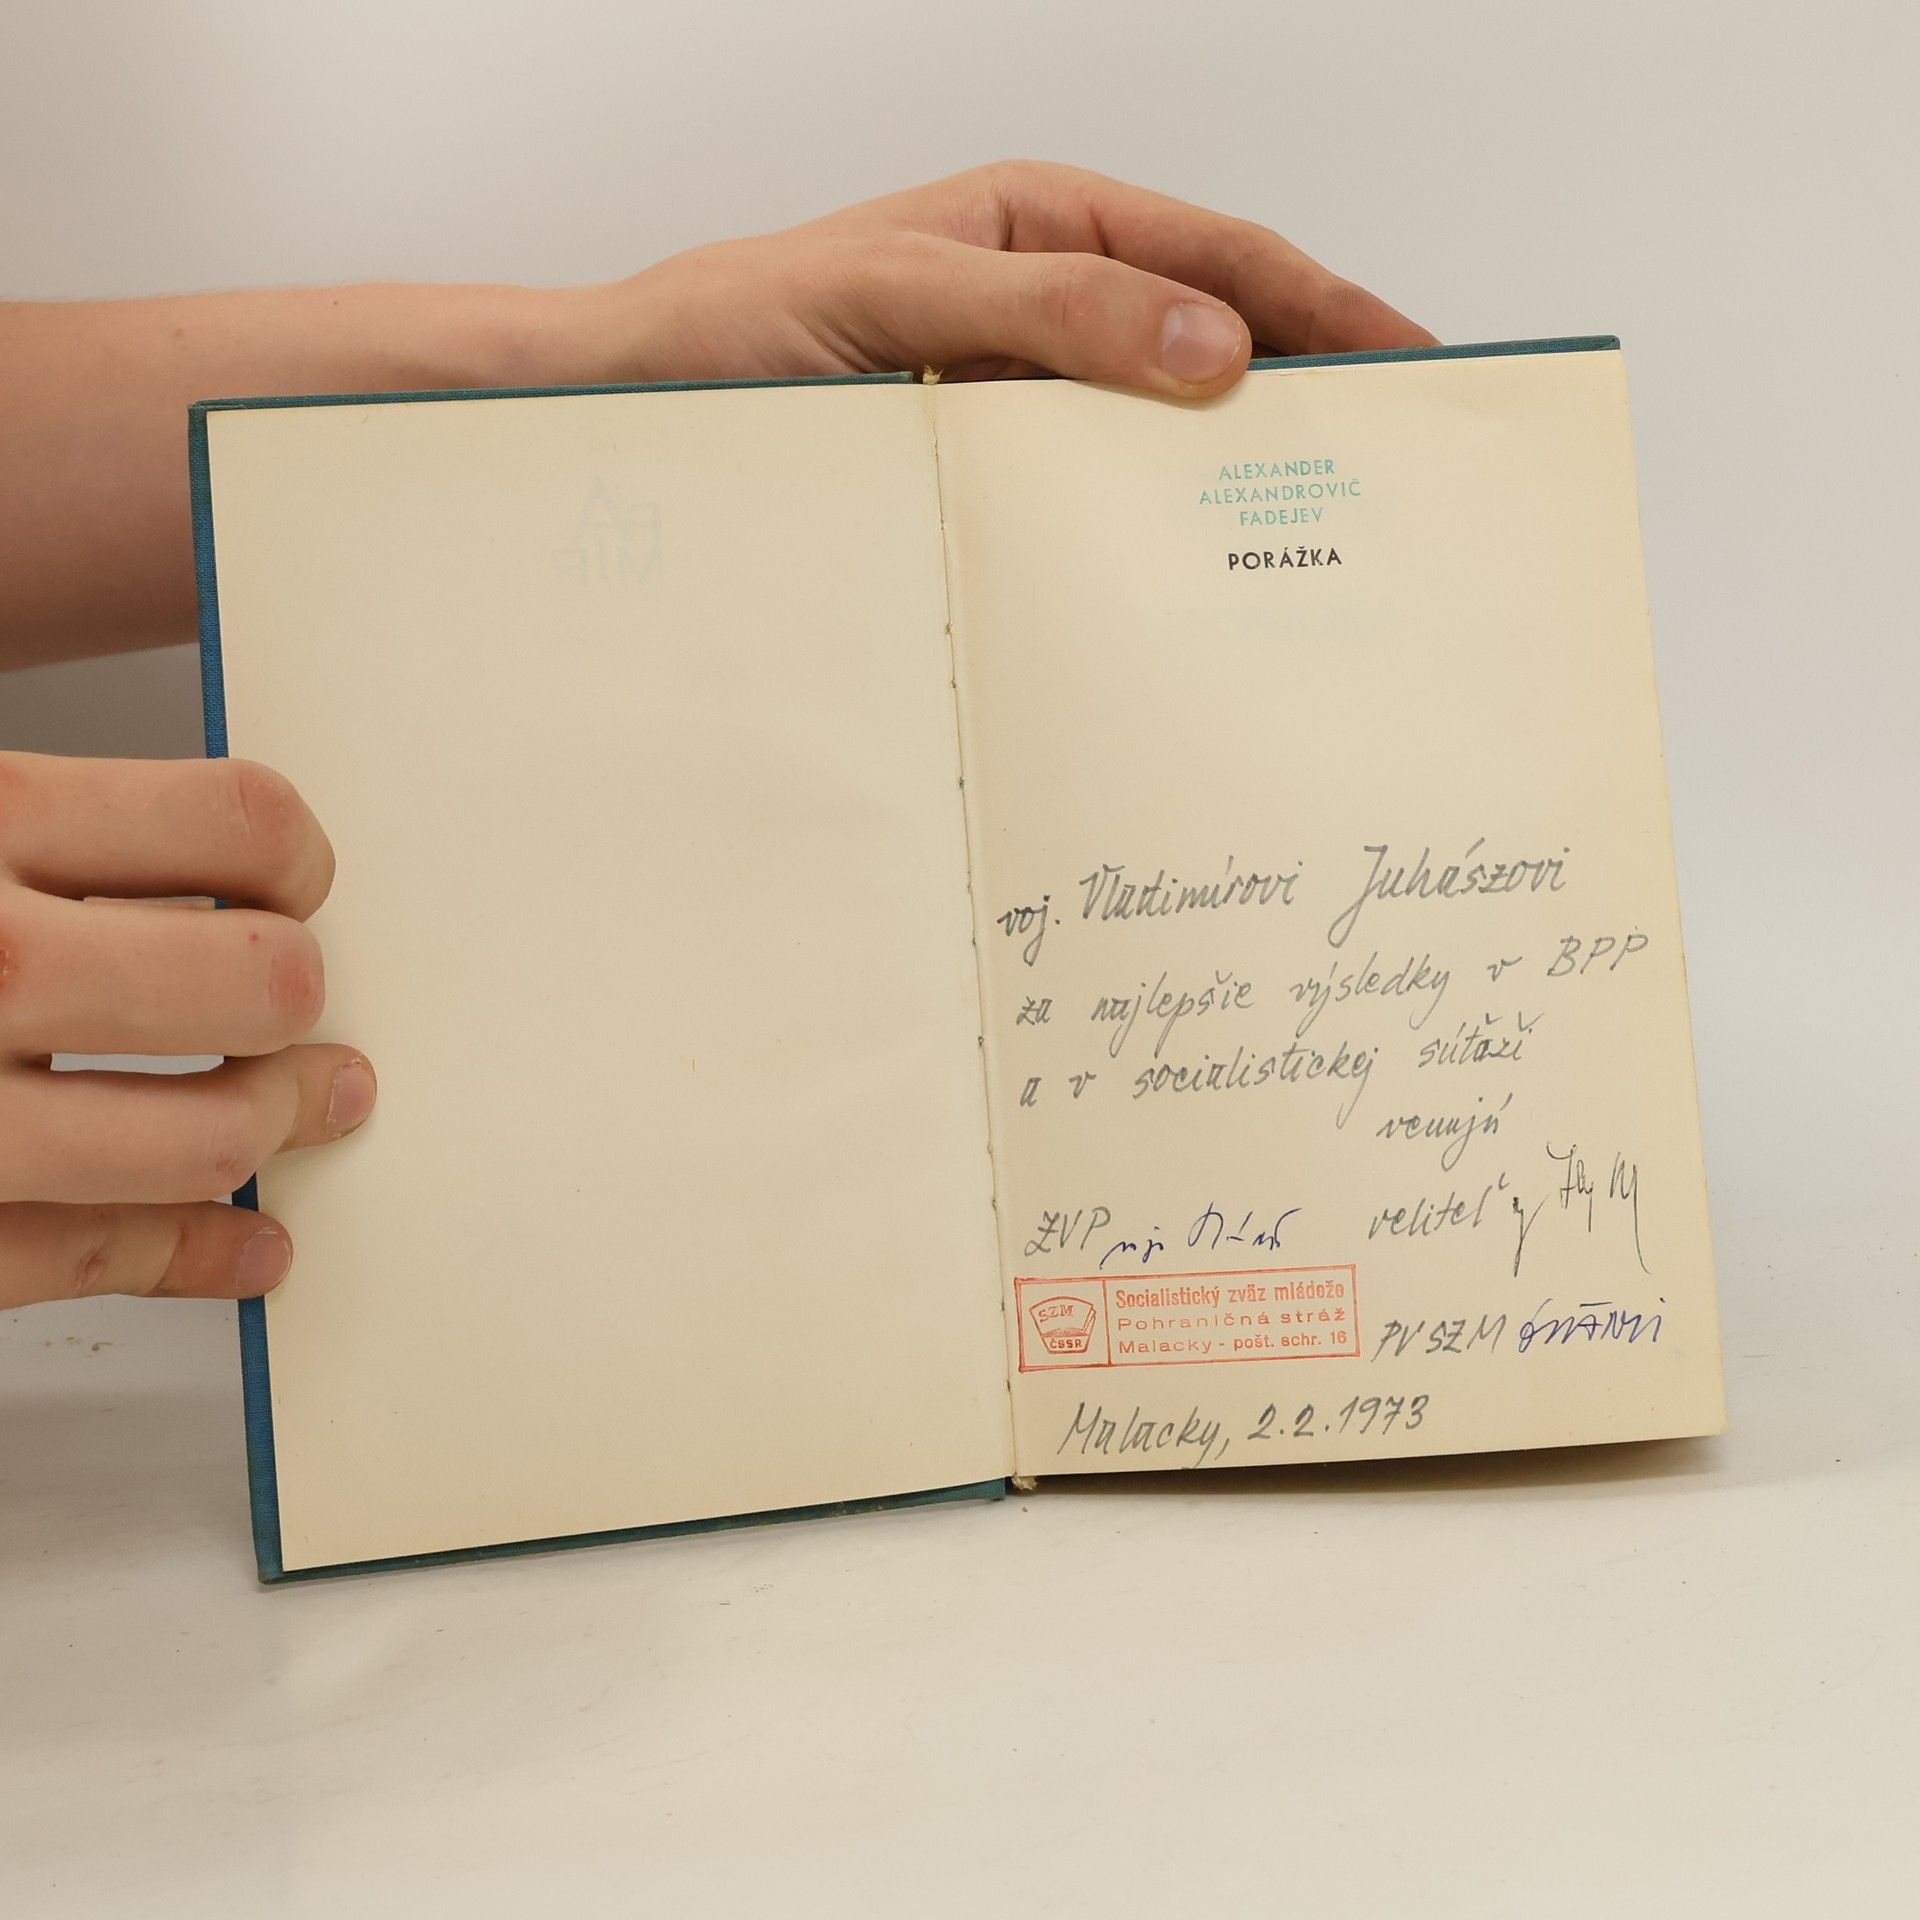 ALEXANDER
ALEXANDROVIČ
FADEJEV
PORÁŽKA
voj. Vladimírovi Juhászovi
za najlepšie výsledky v BPP
a v socialistickej súťaži
venujú
ZVP
veliteľ
SZM
ČSSR
Socialistický zväz mládeže
Pohraničná stráž
Malacky - pošt. schr. 16
PV SZM
Malacky, 2.2.1973